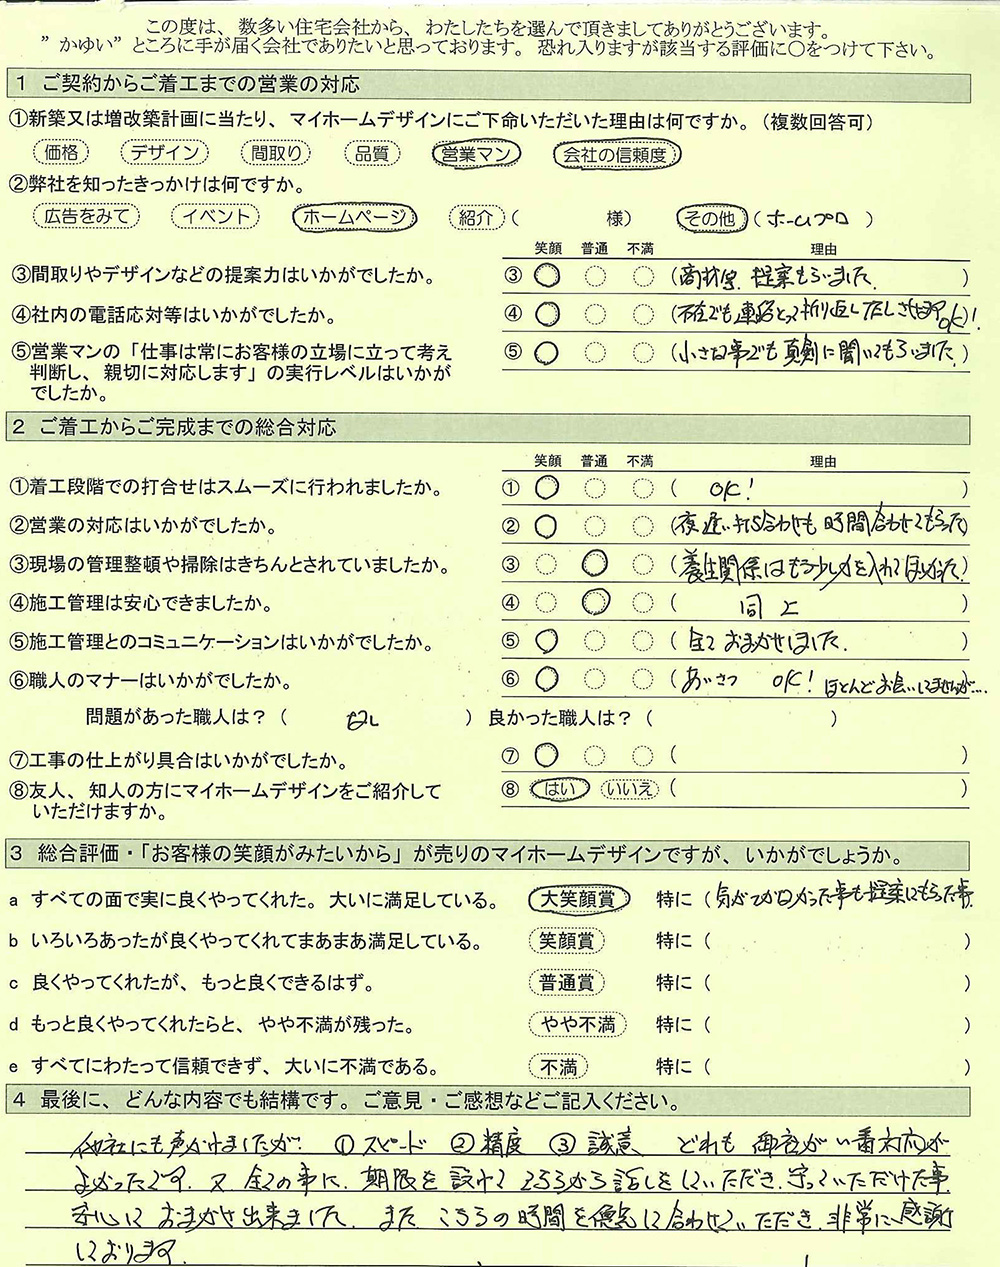 この度は、数多い住宅会社から、わたしたちを選んで頂きましてありがとうございます。
”かゆい”ところに手が届く会社でありたいと思っております。恐れ入りますが該当する評価に〇をつけて下さい。
1 ご契約からご着工までの営業の対応
①新築又は増改築計画に当たり、マイホームデザインにご下命いただいた理由は何ですか。（複数回答可）
価格 デザイン 間取り 品質 営業マン 会社の信頼度
②弊社を知ったきっかけは何ですか。
広告をみて イベント ホームページ 紹介（ 様） その他（ホームプロ）
笑顔 普通 不満 理由
③間取りやデザインなどの提案力はいかがでしたか。 ③ 〇 〇 〇（商材等、提案もらいました。）
④社内の電話応対等はいかがでしたか。 ④ 〇 〇 〇（不在でも連絡とって折り返し OK）!
⑤営業マンの「仕事は常にお客様の立場に立って考え ⑤ 〇 〇 〇（小さな事でも真剣に聞いてもらいました。）
判断し、親切に対応します」の実行レベルはいかが
でしたか。
2 ご着工からご完成までの総合対応
笑顔 普通 不満 理由
①着工段階での打合せはスムーズに行われましたか。 ① 〇 〇 〇（ OK! ）
②営業の対応はいかがでしたか。 ② 〇 〇 〇（夜遅い打ち合わせも時間合わせてもらった）
③現場の管理整頓や掃除はきちんとされていましたか。 ③ 〇 〇 〇（養生関係はもう少し力を入れてほしかった!）
④施工管理は安心できましたか。 ④ 〇 〇 〇（ 同上 ）
⑤施工管理とのコミュニケーションはいかがでしたか。 ⑤ 〇 〇 〇（全ておまかせしました。）
⑥職人のマナーはいかがでしたか。 ⑥ 〇 〇 〇（あいさつ OK! ほとんどお会いしてませんが…
問題があった職人は？（ なし ） 良かった職人は？（ ）
⑦工事の仕上がり具合はいかがでしたか。 ⑦ 〇 〇 〇（ ）
⑧友人、知人の方にマイホームデザインをご紹介して ⑧ はい いいえ（ ）
いただけますか。
3 総合評価・「お客様の笑顔がみたいから」が売りのマイホームデザインですが、いかがでしょうか。
a すべての面で実に良くやってくれた。大いに満足している。 大笑顔賞 特に（気がつかなかった事も提案してもらった事。
b いろいろあったが良くやってくれてまあまあ満足している。 笑顔賞 特に（ ）
c 良くやってくれたが、もっと良くできるはず。 普通賞 特に（ ）
d もっと良くやってくれたらと、やや不満が残った。 やや不満 特に（ ）
e すべてにわたって信頼できず、大いに不満である。 不満 特に（ ）
4 最後に、どんな内容でも結構です。ご意見・ご感想などご記入ください。
他社にも声かけましたが、①スピード ②精度 ③誠意 どれも御社がい番対応が
よかったです。又全ての事に、期限を設けてそちらから話しをしていただき、守っていただけた事
安心しておまかせ出来ました。またこちらの時間を優先して合わせていただき、非常に感謝
しております。